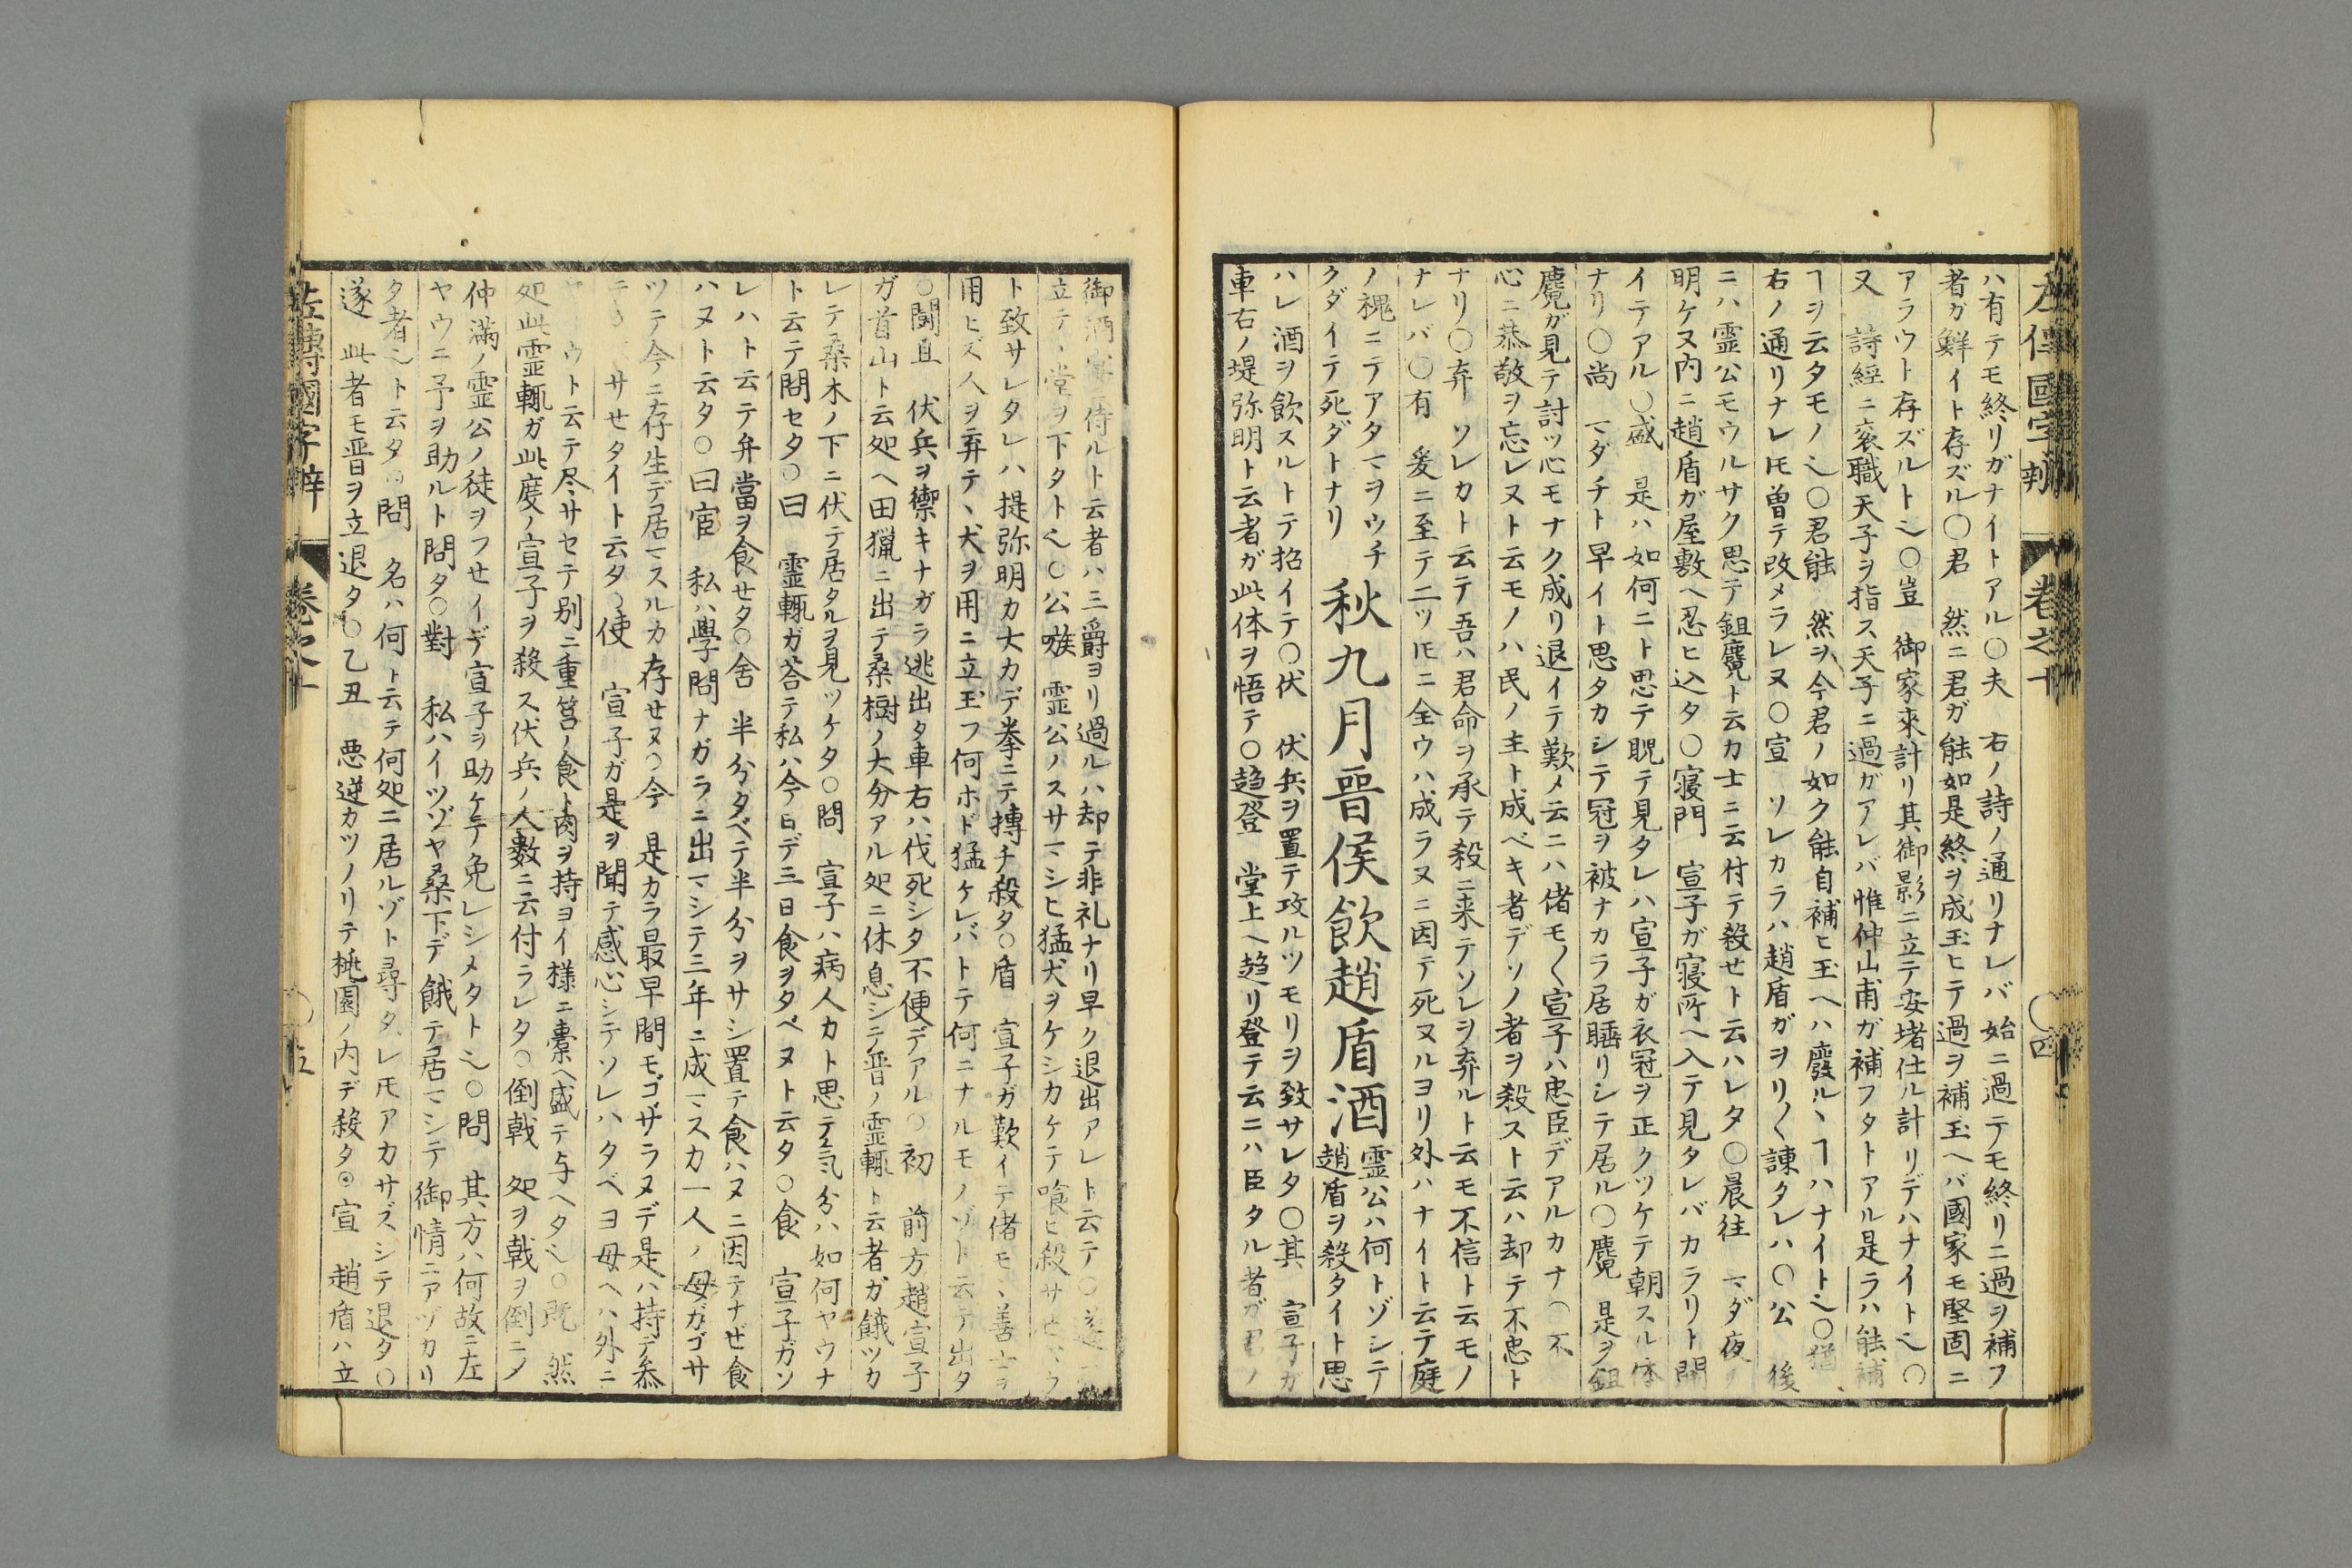 左傳國字辨 卷之十 ○四
ハ有テモ終リガナイトアル○夫 右ノ詩ノ通リナレバ始ニ過テモ終リニ過ヲ補フ
者ガ鮮イト存ズル○君 然ニ君ガ能如是終ヲ成玉ヒテ過ヲ補玉ヘバ國家モ堅固ニ
アラウト存ズルト也○豈 御家來計リ其御影ニ立テ安堵仕ル計リデハナイト也○
又 詩經ニ袞職天子ヲ指ス天子ニ過ガアレバ惟仲山甫ガ補フタトアル是ラハ能補
ヿヲ云タモノ也○君能 然ヲ今君ノ如ク能自補ヒ玉ヘハ廢ルヽヿハナイト也○猶
右ノ通リナレ𪜈曽テ改メラレヌ○宣 ソレカラハ趙盾ガヲリ〱諌タレハ○公 後
ニハ霊公モウルサク思テ鉏麑ト云カ士ニ云付テ殺セト云ハレタ○晨往 マダ夜
明ケヌ内ニ趙盾ガ屋敷ヘ忍ヒ込タ○寝門 宣子ガ寝所ヘ入テ見タレバカラリト開
イテアル○盛 是ハ如何ニト思テ覘テ見タレハ宣子ガ衣冠ヲ正クツケテ朝スル筈
ナリ○尚 マダチト早イト思タカシテ冠ヲ被ナカラ居睡リシテ居ル○麑 是ヲ鉏
麑ガ見テ討ツ心モナク成リ退イテ歎メ云ニハ偖モ〱宣子ハ忠臣デアルカナ○不
心ニ恭敬ヲ忘レヌト云モノハ民ノ主ト成ベキ者デソノ者ヲ殺スト云ハ却テ不忠ト
ナリ○弃 ソレカト云テ吾ハ君命ヲ承テ殺ニ来テソレヲ弃ルト云モ不信ト云モノ
ナレバ○有 爰ニ至テ二ツ𪜈ニ全ウハ成ラヌニ因テ死ヌルヨリ外ハナイト云テ庭
ノ槐ニテアタマヲウチ
クダイテ死ダトナリ
秋九月晉侯飲趙盾酒
霊公ハ何トゾシテ
趙盾ヲ殺タイト思
ハレ酒ヲ飲スルトテ招イテ○伏 伏兵ヲ置テ攻ルツモリヲ致サレタ○其 宣子カ
車右ノ堤弥明ト云者ガ此体ヲ悟テ○趨登 堂上ヘ趨リ登テ云ニハ臣タル者ガ君ノ
御酒宴ニ侍ルト云者ハ三爵ヨリ過ルハ却テ非礼ナリ早ク退出アレト云テ○遂
立テ、堂ヲ下タト也○公嗾 霊公ノスサマシヒ猛犬ヲケシカケテ喰ヒ殺サセヽウ
ト致サレタレハ提弥明カ大カデ拳ニテ摶チ殺タ○盾 宣子ガ歎イテ偖モヽ善士ヲ
用ヒズ人ヲ弃テ、犬ヲ用ニ立玉フ何ホド猛ケレバトテ何ニナルモノゾト云テ出タ
○闘且 伏兵ヲ禦キナガラ逃出タ車右ハ伐死シタ不便デアル○初 前方趙宣子
ガ首山ト云処ヘ田獵ニ出テ桑樹ノ大分アル処ニ休息シテ晉ノ霊輒ト云者ガ餓ツカ
レテ桑木ノ下ニ伏テ居タルヲ見ツケタ○問 宣子ハ病人カト思テ氣分ハ如何ヤウナ
ト云テ問セタ○曰 霊輒ガ荅テ私ハ今日デ三日食ヲタベヌト云タ○食 宣子ガソ
レハト云テ弁當ヲ食セタ○舍 半分タベテ半分ヲサシ置テ食ハヌニ因テナゼ食
ハヌト云タ○曰宦 私ハ學問ナガラニ出マシテ三年ニ成マスカ一人ノ母ガゴサ
ツテ今ニ存生デ居マスルカ存セヌ○今 是カラ最早間モゴザラヌデ是ハ持デ参
サセタイト云タ○使 宣子ガ是ヲ聞テ感心シテソレハタベヨ母ヘハ外ニ
ウト云テ尽サセテ別ニ重筥ノ食ト肉ヲ持ヨイ様ニ橐ヘ盛テ与ヘタ也○既 然
処此霊輒ガ此度ノ宣子ヲ殺ス伏兵ノ人數ニ云付ラレタ○倒戟 処ヲ戟ヲ倒ニメ
仲滿ノ霊公ノ徒ヲフセイデ宣子ヲ助ケテ免レシメタト也○問 其方ハ何故ニ左
ヤウニ予ヲ助ルト問タ○對 私ハイツゾヤ桑下デ餓テ居マシテ御情ニアヅカリ
タ者也ト云タ○問 名ハ何ト云テ何処ニ居ルゾト尋タレ𪜈アカサズシテ退タ○
遂 此者モ晋ヲ立退タ○乙丑 悪逆カツノリテ桃園ノ内デ殺タ◎宣 趙盾ハ立
左傳國字辨 卷之十 ○五